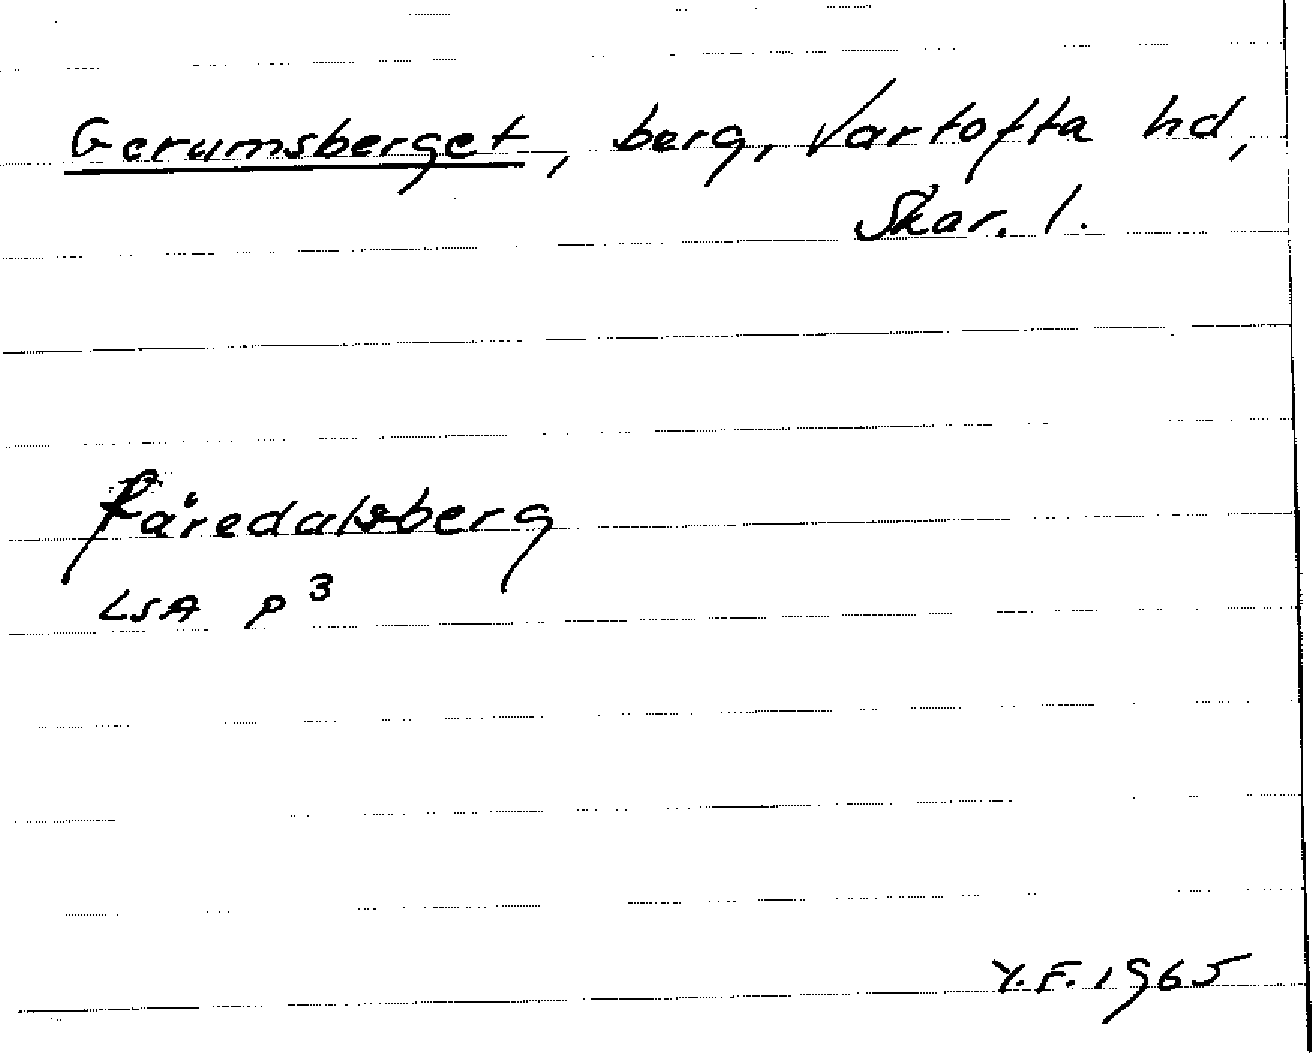 Gerumsberget, berg, Vartofta hd,
Skar. l.
Fåredalsberg
LSA p 3
Y.F. 1965